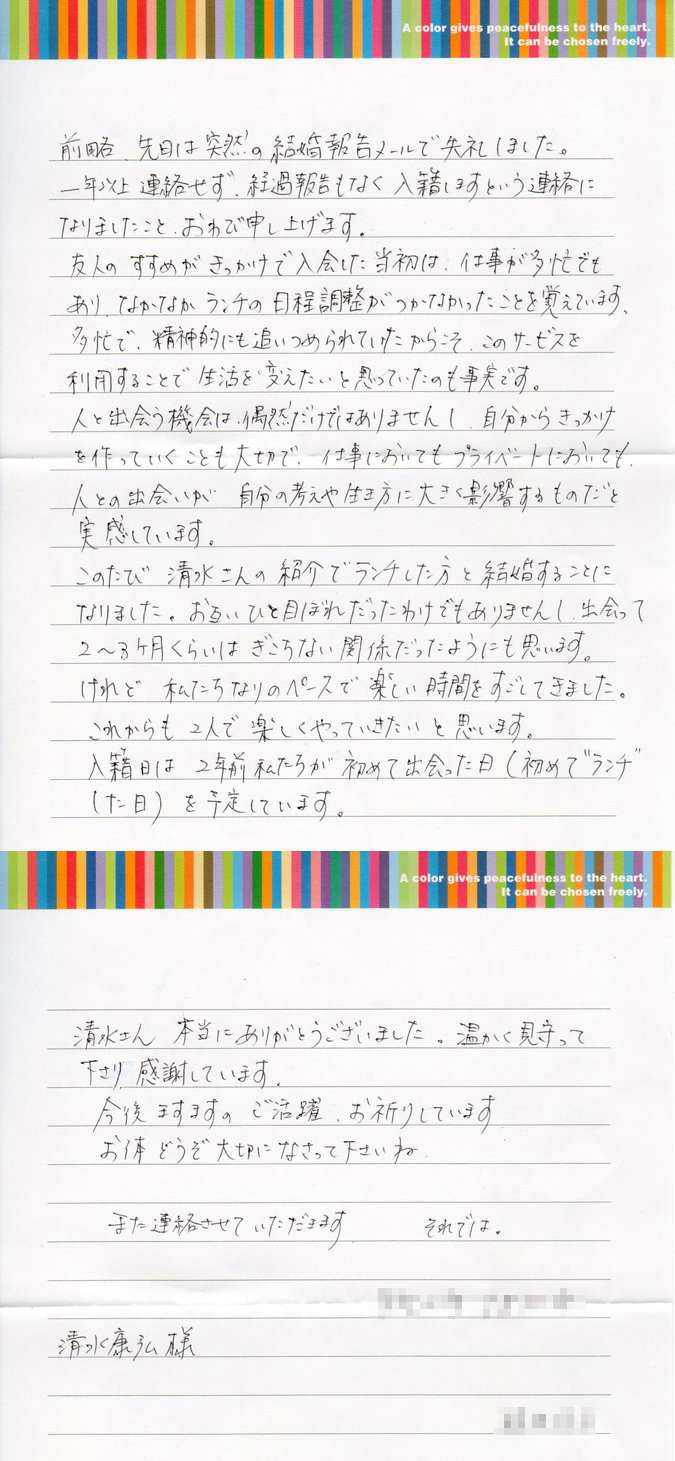 A color gives peacefulness to the heart.
It can be chosen freely.
前略、先日は突然の結婚報告メールで失礼しました。
一年以上連絡せず、経過報告もなく入籍しますという連絡に
なりましたこと、おわび申し上げます。
友人のすすめがきっかけで入会した当初は、仕事が多忙でも
あり、なかなかランチの日程調整がつかなかったことを覚えています。
多忙で、精神的にも追いつめられていたからこそ、このサービスを
利用することで生活を変えたいと思っていたのも事実です。
人と出会う機会は、偶然だけではありませんし、自分からきっかけ
を作っていくことも大切で、仕事においてもプライベートにおいても、
人との出会いが自分の考えや生き方に大きく影響するものだと
実感しています。
このたび清水さんの紹介でランチした方と結婚することに
なりました。お互いひと目ぼれだったわけでもありませんし、出会って
2〜3ケ月くらいはぎこちない関係だったようにも思います。
けれど私たちなりのペースで楽しい時間をすごしてきました。
これからも2人で楽しくやっていきたいと思います。
入籍日は2年前私たちが初めて出会った日(初めて"ランチ"
した日)を予定しています。
A color gives peacefulness to the heart.
It can be chosen freely.
清水さん 本当にありがとうございました。温かく見守って
下さり感謝しています。
今後ますますのご活躍、お祈りしています
お体どうぞ大切になさって下さいね。
また連絡させていただきます それでは。
清水康弘様